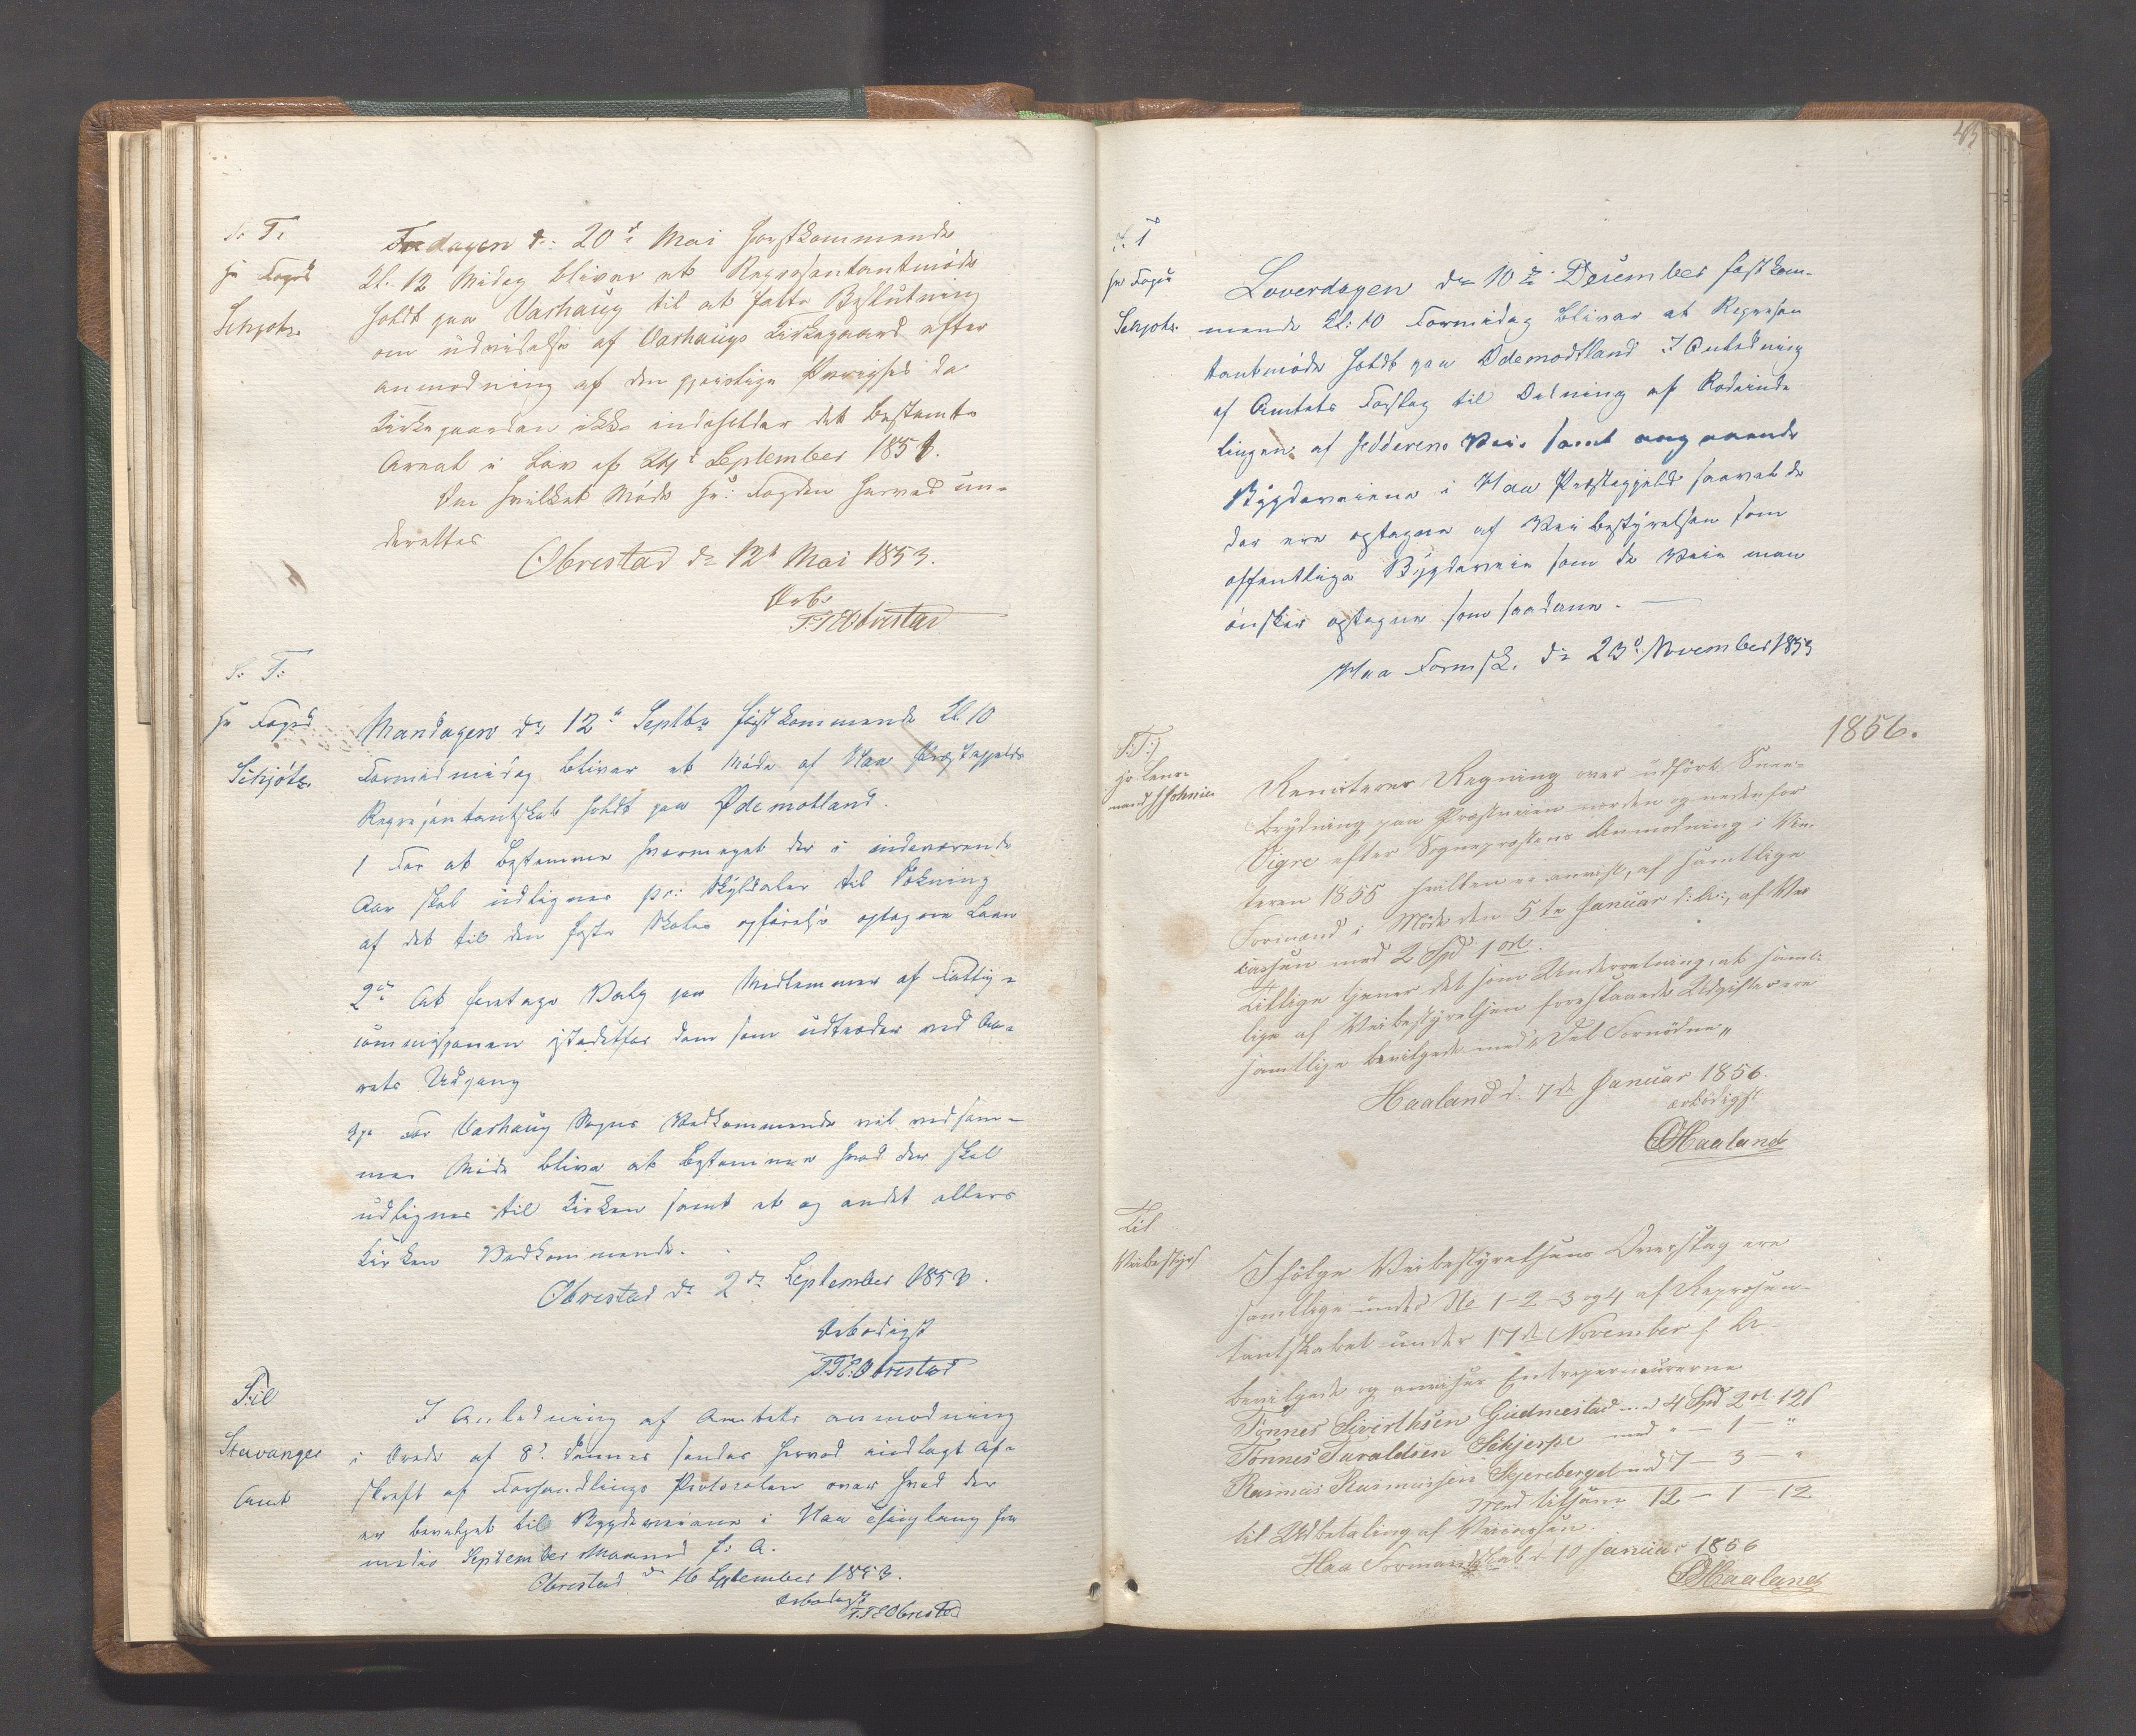 S. T.
Hr Foged
Schjøtz.
Fredagen d: 20de Mai førstkommende
Kl. 12 Midag bliver et Representantmøde
holdt paa Varhaug til at fatte Beslutning
om udvidelse af Varhaugs Kirkegaard efter
anmodning af den gjeistlige Øvrighed da
Kirkegaarden ikke indeholder det bestemte
Areal i Lov af 24d September 1851.
Om hvilket Møde Hr: Fogden herved un-
derettes
Obrestad d= 12t Mai 1853.
Ærb.
T. T. Obrestad
S. T.
Hr Foged
Schjøtz.
Mandagen d= 12te Septbr førstkommende Kl 10
Formidmidag bliver et Møde af Haa Præstegjelds
Representantskab holdt paa Ødemotland.
1 For at bestemme hvormeget der i indeværende
Aar skal udlignes pr: Skyldaler til Dekning
af det til den faste Skoles opførelse optagne Laan
2de At foretage Valg paa Medlemmer af Fattig-
commisjonen istedetfor dem som udtræder ved Aa-
rets Udgang
3je For Varhaug Sogns Vedkommende vil ved sam-
me Møde blive at bestemme hvad der skal
udlignes til Kirken samt et og andet ellers
Kirken Vedkommende.
Obrestad d= 2de September 1853.
Ærbødigst
T. T. Obrestad
Til
Stavanger
Amt
I Anledning af Amtets anmodning
i Brede af 8d dennes sendes herved indlagt Af-
skrift af Forhandlings Protocolen over hvad der
er bevelget til Bygdeveiene i Haa Thinglaug fra
medio September Maaned f: A.
Obrestad d= 16 September 1853.
Ærbødigst
T. T. Obrestad
43
S. T
Hr Foged
Schjøtz.
Loverdagen d= 10de December førstkom-
mende Kl: 10 Formidag bliver et Represen
tantmøde holdt paa Ødemodtland I Anledning
af Amtets Forslag til Deling af Rodeinde
lingen af Jedderens Vei. samt angaaende
Bygdeveiene i Haa Præstegjeld saavel de
der ere optagne af Vei bestyrelsen som
offentlige Bygdeveie som de Veie man
ønsker optagne som saadanne.
Haa Formsk. d= 23d November 1853
1856.
S:T:
Hr Lens-
mand
Remiterer Regning over udført Snee-
brydning paa Præsteveien norden og nedenfor
Vigre efter Sogneprestens Anmodning i Vin-
teren 1855 hvilken er anvist, af samtlige
Formænd i Møde den 5te Januar d: A:, af Vei
cassen med 2 Spd 1 ort.
Tillige tjener det som Underretning, at samt-
lige af Veibestyrelsen foreslaaede Udgifter ere
samtlige bevilgede med, Det Fornødne"
Haaland d. 7de Januar 1856.
ærbødigst
Haaland
Til
Veibestyr
Ifølge Veibestyrelsens Overslag ere
samtlige under No 1-2-3 og 4 af Represen-
tantskabet under 17de November f. A.
bevilgede og anvises Entreprenørerne
Tønnes Sivertsen Gudmestad med 4 Spd 2 ort 12 s
Tønnes Taraldsen Schjerpe med " - 1 - "
Rasmus Rasmussen Skjereberget med 7 - 3 - "
Med tilsam 12 - 1 - 12
til Udbetaling af Veicassen.
Haa Formandskab d. 10 Januar 1856
Haaland